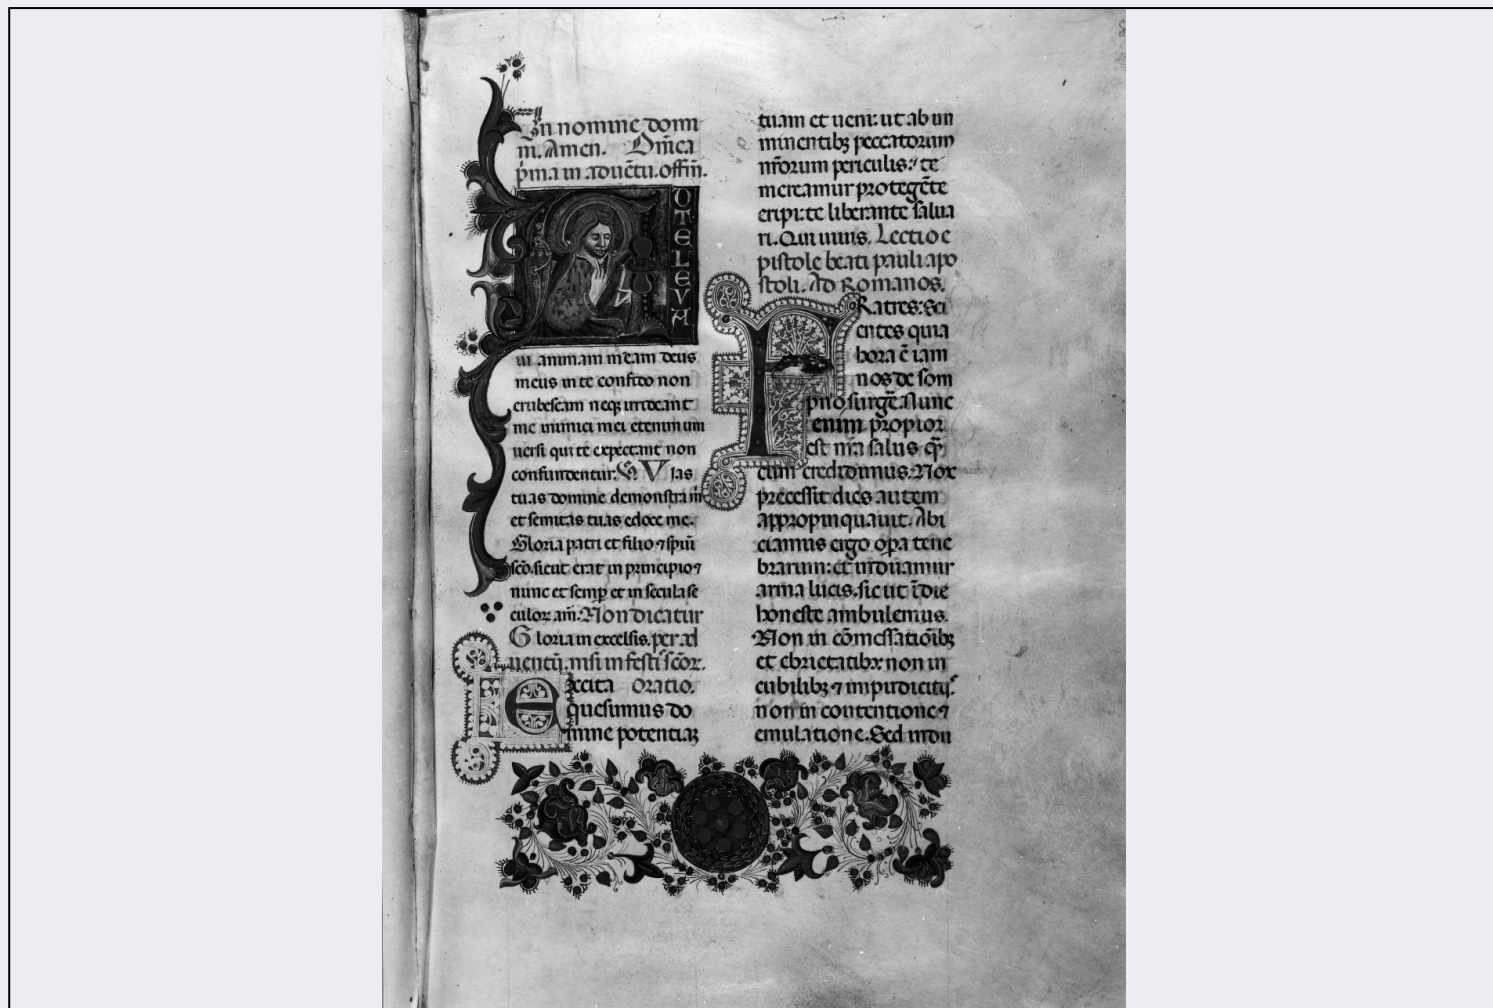 In nomine domi
ni. Amen. Dm̄ca
p̄ma in aduētu. offm̄.
A
D
TE
LE
VA
ui animam meam deus
meus in te confido non
erubescam neqꝫ irrideant
me inimici mei etenim uni
uersi qui te expectant non
confundentur. V Vias
tuas domine demonstra m̄
et semitas tuas edoce me.
Gloria patri et filio ⁊ spūi
scō. sicut erat in principio ⁊
nunc et semꝑ et in secula se
culoꝝ am̄. Non dicatur
Gloria in excelsis. per ad
uentū. nisi in festis scōꝝ.
Excita Oratio.
quesumus do
mine potentiaꝫ
tuam et ueni: ut ab im
minentibꝫ peccatorum
nr̄orum periculis: te
mereamur protegēte
eripi: te liberante salua
ri. Qui uiuis. Lectio e
pistole beati pauli apo
stoli. Ad Romanos.
FRatres: Sci
entes quia
hora ē iam
nos de som
pno surgē. Nunc
enim propior
est nr̄a salus qm̄
cum credidimus. Nox
precessit dies autem
appropinquauit. Abi
ciamus ergo oꝑa tene
brarum: et induamur
arma lucis. sicut ī die
honeste ambulemus.
Non in cōmessatiōibꝫ
et ebrietatibꝫ non in
cubilibꝫ ⁊ inpudicitijs
non in contentione ⁊
emulatione. Sed indu